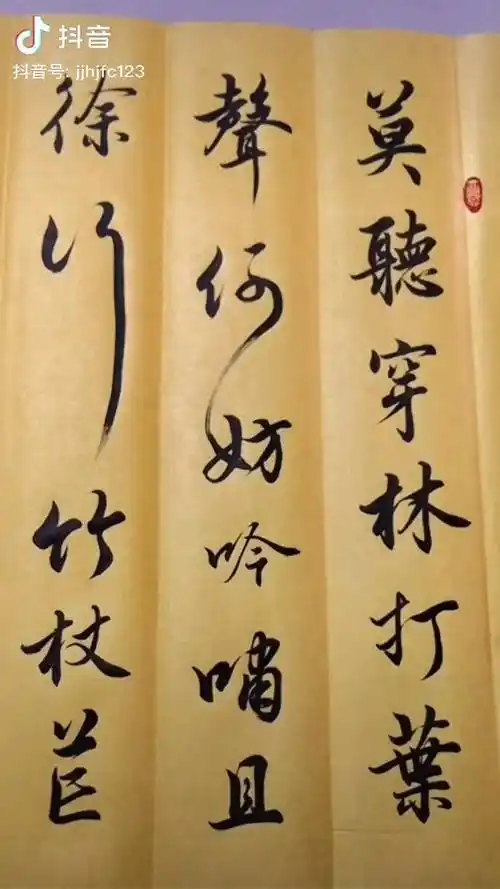 抖音
抖音号: jjhjfc123
莫聽穿林打葉
聲何妨吟嘯且
徐行竹杖芒